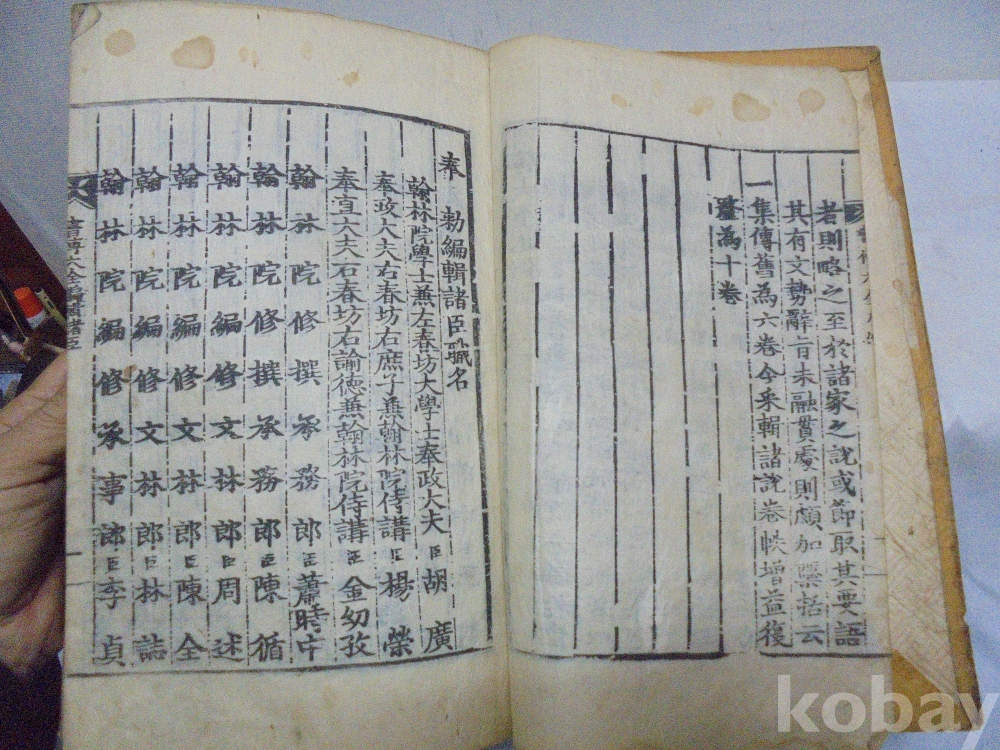 者則略之至於諸家之說或節取其要語
其有文勢辭旨未融貫處則頗加檃括云
一集傳舊為六卷今采輯諸說卷帙增益復
釐為十卷
奉 勅編輯諸臣職名
翰林院學士兼左春坊大學士奉政大夫臣胡廣
奉政大夫右春坊右庶子兼翰林院侍講臣楊榮
奉直大夫右春坊右諭德兼翰林院侍講臣金幼孜
翰林院修撰承務郎臣蕭時中
翰林院修撰承務郎臣陳循
翰林院編修文林郎臣周述
翰林院編修文林郎臣陳全
翰林院編修文林郎臣林誌
翰林院編修承事郎臣李貞
kobay